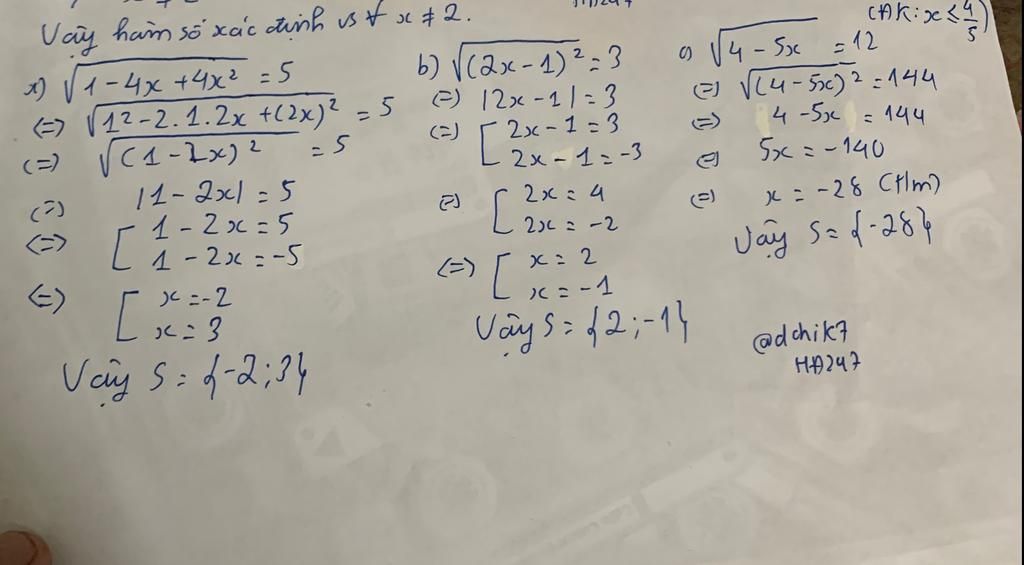 Vậy hàm số xác định vs ∀ x ≠ 2.
(ĐK: x ≤ 4/5)
a) √(1 - 4x + 4x²) = 5
(=) √(1² - 2.1.2x + (2x)²) = 5
(=) √((1 - 2x)²) = 5
(=) |1 - 2x| = 5
(=) [ 1 - 2x = 5
1 - 2x = -5
(=) [ x = -2
x = 3
Vậy S = {-2; 3}
b) √((2x - 1)²) = 3
(=) |2x - 1| = 3
(=) [ 2x - 1 = 3
2x - 1 = -3
(=) [ 2x = 4
2x = -2
(=) [ x = 2
x = -1
Vậy S = {2; -1}
c) √(4 - 5x) = 12
(=) √((4 - 5x)²) = 144
(=) 4 - 5x = 144
(=) 5x = -140
(=) x = -28 (t/m)
Vậy S = {-28}
@dchik7
HD247